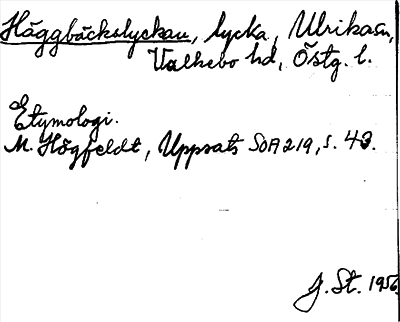 Häggbäckslyckan, lycka, Ulrikasn,
Valkebo hd, Östg. l.
Etymologi.
M. Högfeldt, Uppsats SOA 219, s. 43.
J. St. 1956.